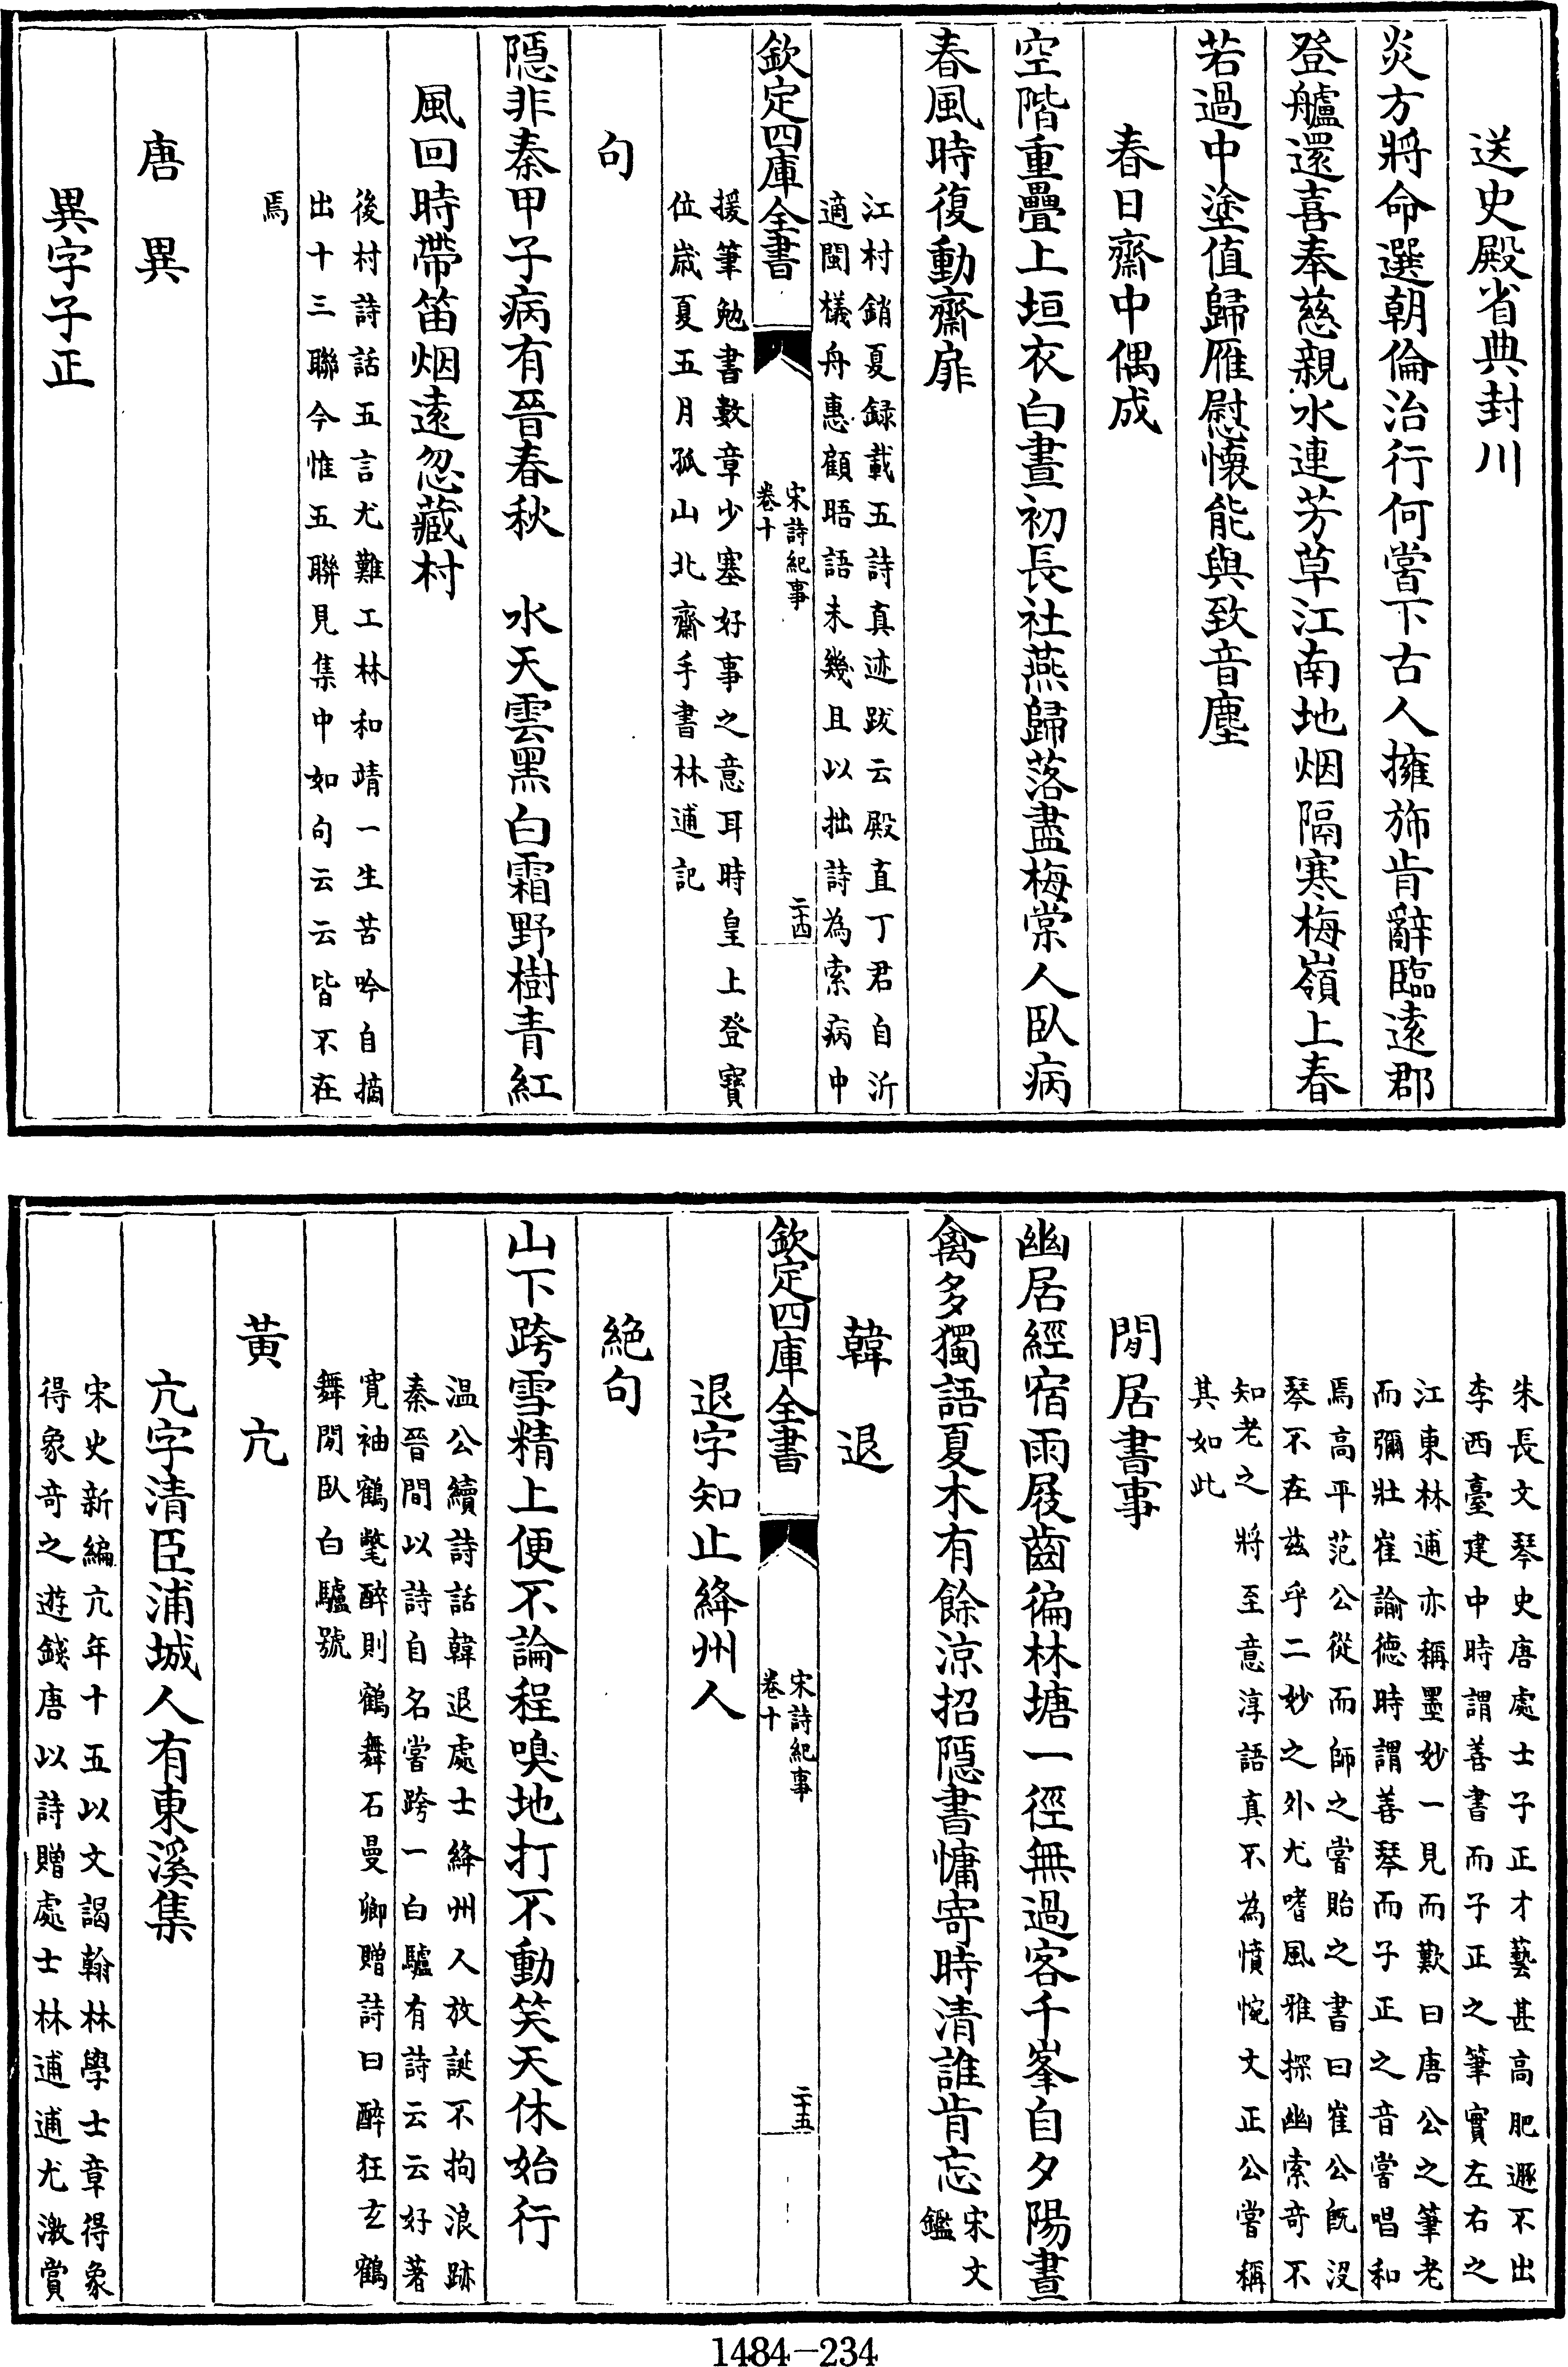 送史殿省典封川
炎方將命選朝倫治行何嘗下古人擁斾肯辭臨遠郡
登艫還喜奉慈親水連芳草江南地烟隔寒梅嶺上春
若過中塗值歸雁慰懷能與致音塵
春日齋中偶成
空階重疊上垣衣白晝初長社燕歸落盡梅棠人臥病
春風時復動齋扉
江村銷夏録載五詩真迹跋云殿直丁君自沂
適閩檥舟惠顧晤語未幾且以拙詩為索病中
欽定四庫全書
宋詩紀事
卷十
二十四
援筆勉書數章少塞好事之意耳時皇上登寶
位歲夏五月孤山北齋手書林逋記
句
隱非秦甲子病有晉春秋 水天雲黑白霜野樹青紅
風回時帶笛烟遠忽藏村
後村詩話五言尤難工林和靖一生苦吟自摘
出十三聯今惟五聯見集中如句云云皆不在
焉
唐異
異字子正
朱長文琴史唐處士子正才藝甚高肥遯不出
李西臺建中時謂善書而子正之筆實左右之
江東林逋亦稱墨妙一見而歎曰唐公之筆老
而彌壯崔諭德時謂善琴而子正之音嘗唱和
焉高平范公從而師之嘗貽之書曰崔公既沒
琴不在兹乎二妙之外尤嗜風雅探幽索奇不
知老之將至意淳語真不為憤惋文正公嘗稱
其如此
閒居書事
幽居經宿雨屐齒徧林塘一徑無過客千峯自夕陽晝
禽多獨語夏木有餘涼招隱書慵寄時清誰肯忘
宋文
鑑
韓退
欽定四庫全書
宋詩紀事
卷十
二十五
退字知止絳州人
絶句
山下跨雪精上便不論程嗅地打不動笑天休始行
温公續詩話韓退處士絳州人放誕不拘浪跡
秦晉間以詩自名嘗跨一白驢有詩云云好著
寛袖鶴氅醉則鶴舞石曼卿贈詩曰醉狂玄鶴
舞閒臥白驢號
黃亢
亢字清臣浦城人有東溪集
宋史新編亢年十五以文謁翰林學士章得象
得象奇之遊錢唐以詩贈處士林逋逋尤激賞
1484-234